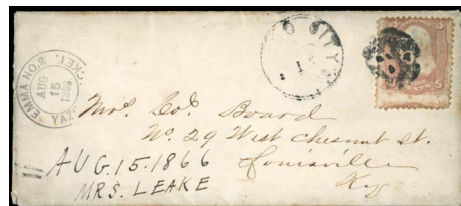 EMMA NO. 2
AUG
15
1866
YAZ
O CITY
1
Mrs. Col. Board
No. 29 West Chesnut st.
Louisville
Ky
AUG. 15. 1866
MRS. LEAKE